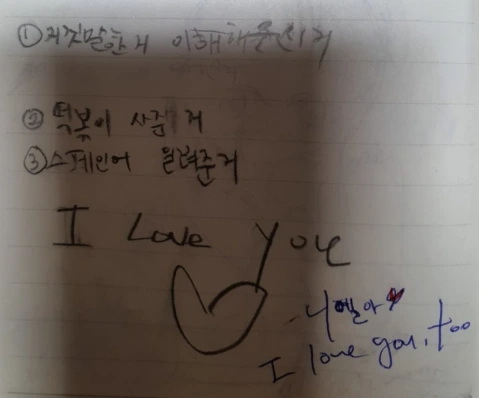 ① 거짓말한거 이해해준거
② 떡볶이 사준거
③ 스페인어 알려준거
I Love You
I love you, too